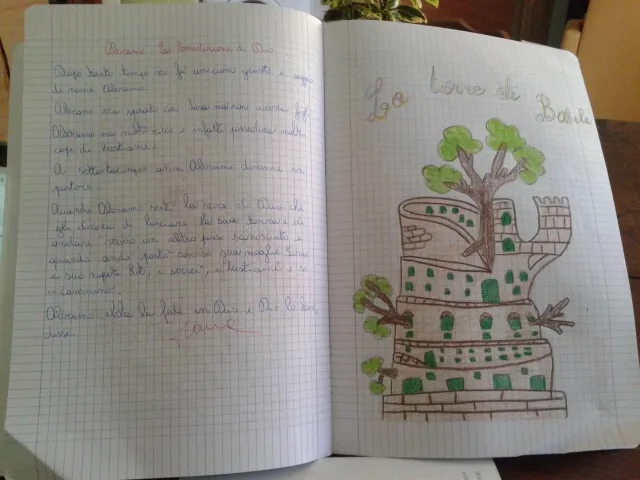 Abramo: la benedizione di Dio
Dopo tanto tempo ci fu un uomo giusto e saggio
di nome Abramo.
Abramo era sposato con Sara ma non aveva figli.
Abramo era molto ricco e infatti possedeva molti
capi di bestiame.
A settantacinque anni Abramo divenne un
pastore.
Quando Abramo sentì la voce di Dio che
gli diceva di lasciare la sua terra e di
andare verso un altro paese sconosciuto e
quando andò portò con se sua moglie Sara
e suo nipote Lot, i servi, il bestiame e si
incamminò.
Abramo ebbe la fede in Dio e Dio lo bene
disse.
La torre di
Babele